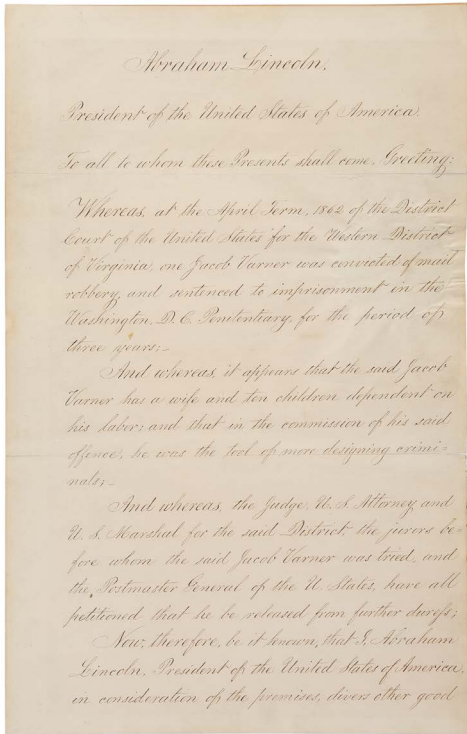 Abraham Lincoln,
President of the United States of America.
To all to whom these Presents shall come, Greeting:
Whereas, at the April Term, 1862 of the District
Court of the United States for the Western District
of Virginia, one Jacob Varner was convicted of mail
robbery, and sentenced to imprisonment in the
Washington, D. C. Penitentiary, for the period of
three years;—
And whereas, it appears that the said Jacob
Varner has a wife and ten children dependent on
his labor; and that in the commission of his said
offence, he was the tool of more designing crimi-
nals;—
And whereas, the Judge, U. S. Attorney, and
U. S. Marshal for the said District, the jurors be-
fore whom the said Jacob Varner was tried, and
the Postmaster General of the U. States, have all
petitioned that he be released from further duress;
Now, therefore, be it known, that I, Abraham
Lincoln, President of the United States of America,
in consideration of the premises, divers other good